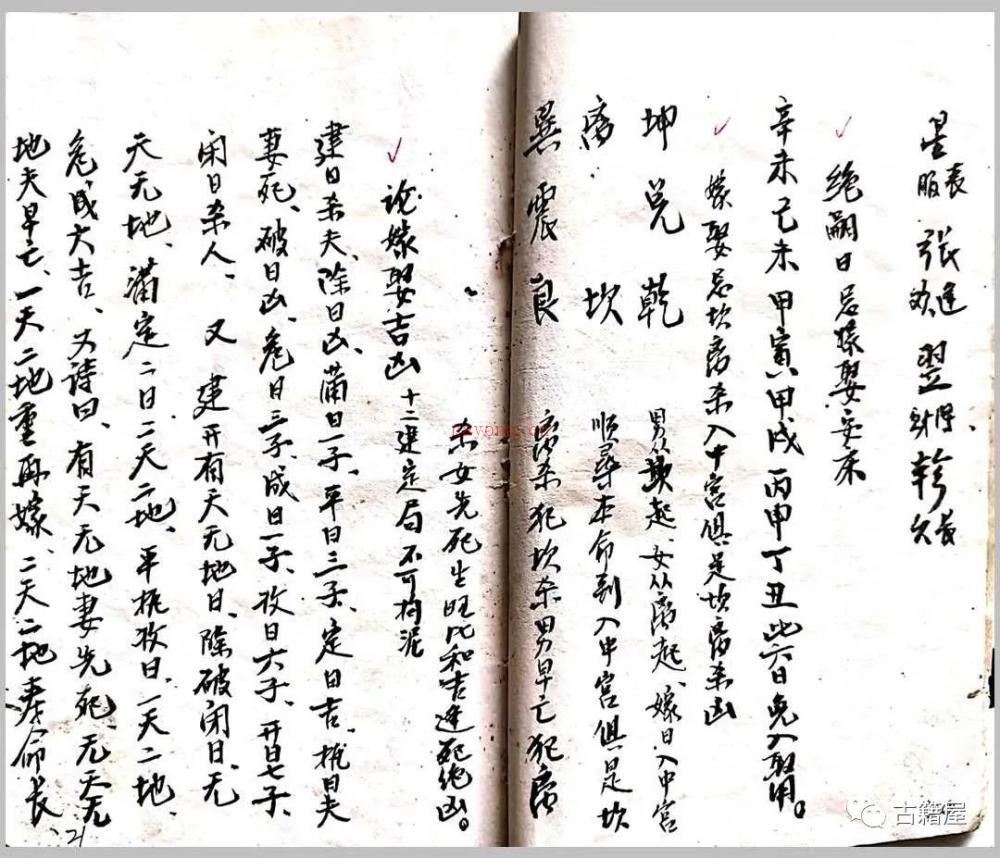 星 張 翌 軫
绝嗣日忌嫁娶安床
辛未己未甲寅甲戍丙申丁丑此六日免入聟用。
嫁娶忌坎离杀入中宫俱是坎离杀凶
坤兑乾 男从坎起、女从离起、嫁日入中宫
离 坎 順尋本命到入中宫俱是坎
巽震艮 离杀犯坎杀男早亡犯离
杀女先死生旺比和吉逢死绝凶。
论嫁娶吉凶 十二建定局不可拘泥
建日杀夫、除日凶、满日一子、平日三子、定日吉、执日夫
妻死、破日凶、危日三子、成日一子、收日六子、开日七子、
闭日杀人、又建开有天无地日、除破闭日、无
天无地、满定二日、二天二地、平执收日、一天二地
危、成大吉、又詩曰、有天无地妻先死、无天无
地夫早亡、一天二地重再嫁、二天二地寿命长
21
古籍屋